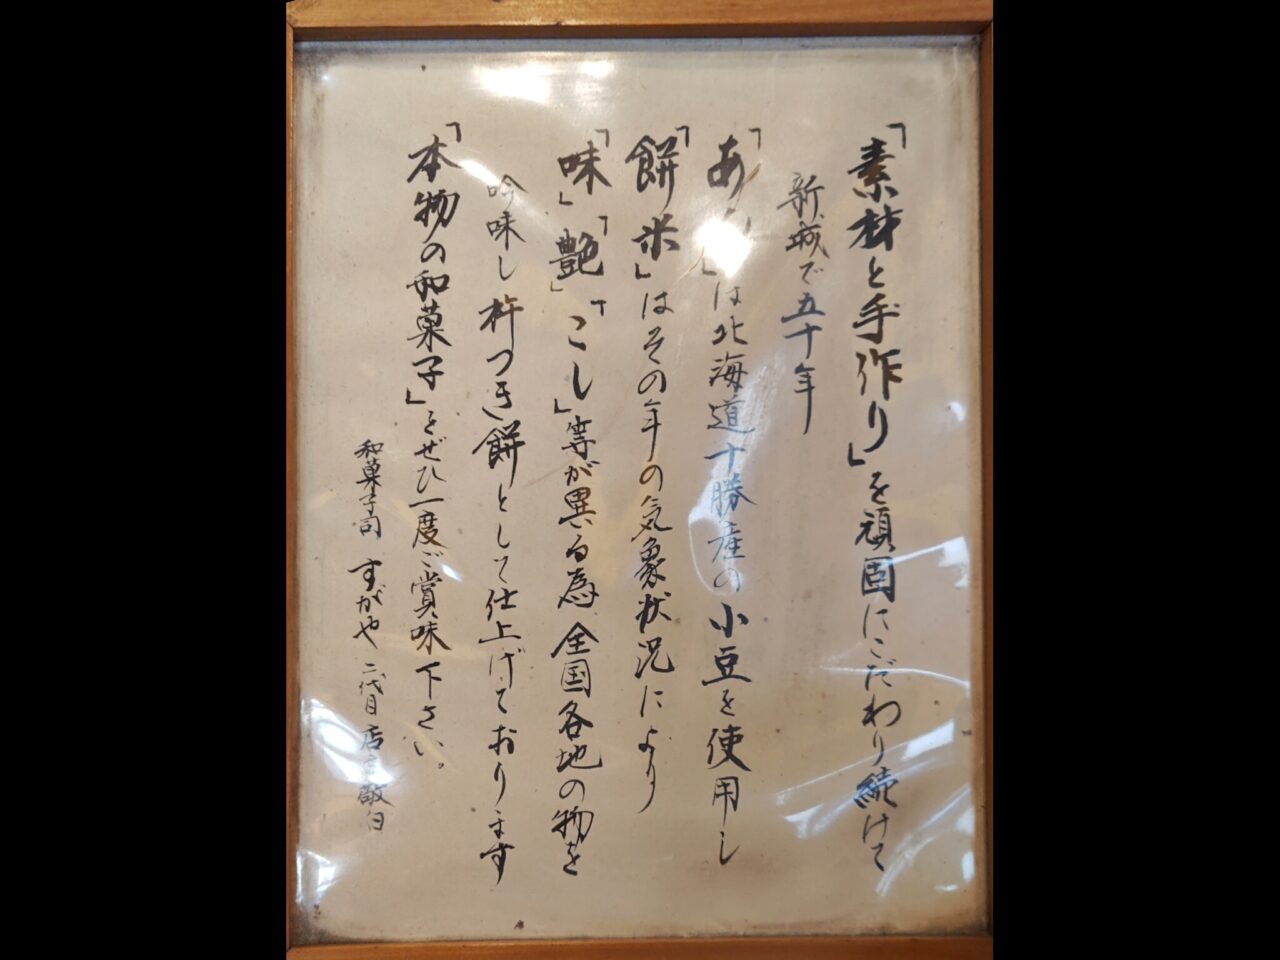 「素材と手作り」を頑固にこだわり続けて
新城で五十年
「あん」は北海道十勝産の小豆を使用し
「餅米」はその年の気象状況により
「味」「艶」「こし」等が異る為全国各地の物を
吟味し杵つき餅として仕上げております
「本物の和菓子」をぜひ一度ご賞味下さい。
和菓子司 すがや 二代目 店主敬白